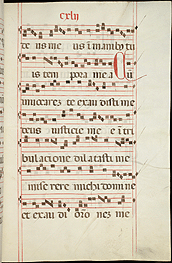 cxlij
te us me us i manib; tu
is tem pora me a C ū
inuocarez te exau disti me
deus iusticie me e i tri
bulacione dilatasti me
mise rere michi domi ne
et exau di orō nez me